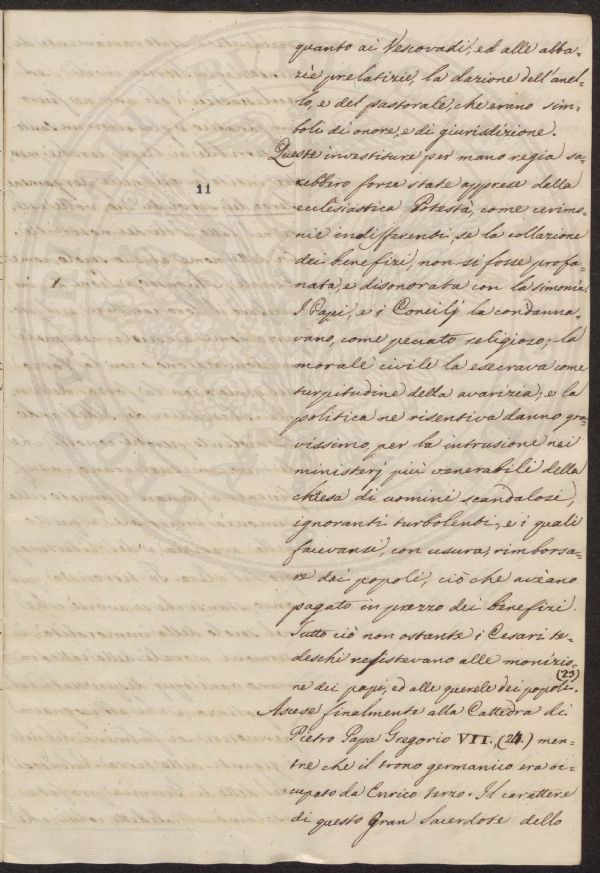 quanto ai Vescovadi, ed alle abba-
zie prelatizie, la dazione dell'anel-
lo, e del pastorale, che erano sim-
boli di onore, e di giurisdizione.
Queste investiture per mano regia sa-
rebbero forse state apprese della
11
ecclesiastica Potestà, come cerimo-
nie indifferenti, se la collazione
dei benefizi, non si fosse profa-
nata, e disonorata con la simonia.
I Papi, e i Concilj la condanna-
vano, come peccato religioso; la
morale civile la esecrava come
turpitudine della avarizia; e la
politica ne risentiva danno gra-
vissimo, per la intrusione nei
ministerj più venerabili della
chiesa di uomini scandalosi,
ignoranti turbolenti, e i quali
facevansi, con usura, rimborsa-
re dai popoli, ciò che aveano
pagato in prezzo dei benefizi.
Tutto ciò non ostante i Cesari te-
deschi resistevano alle monizio-
ne dei papi, ed alle querele dei popoli. (23)
Ascese finalmente alla Cattedra di
Pietro Papa Gregorio VII. (24.) men-
tre che il trono germanico era oc-
cupato da Enrico terzo. Il carattere
di questo Gran Sacerdote dello